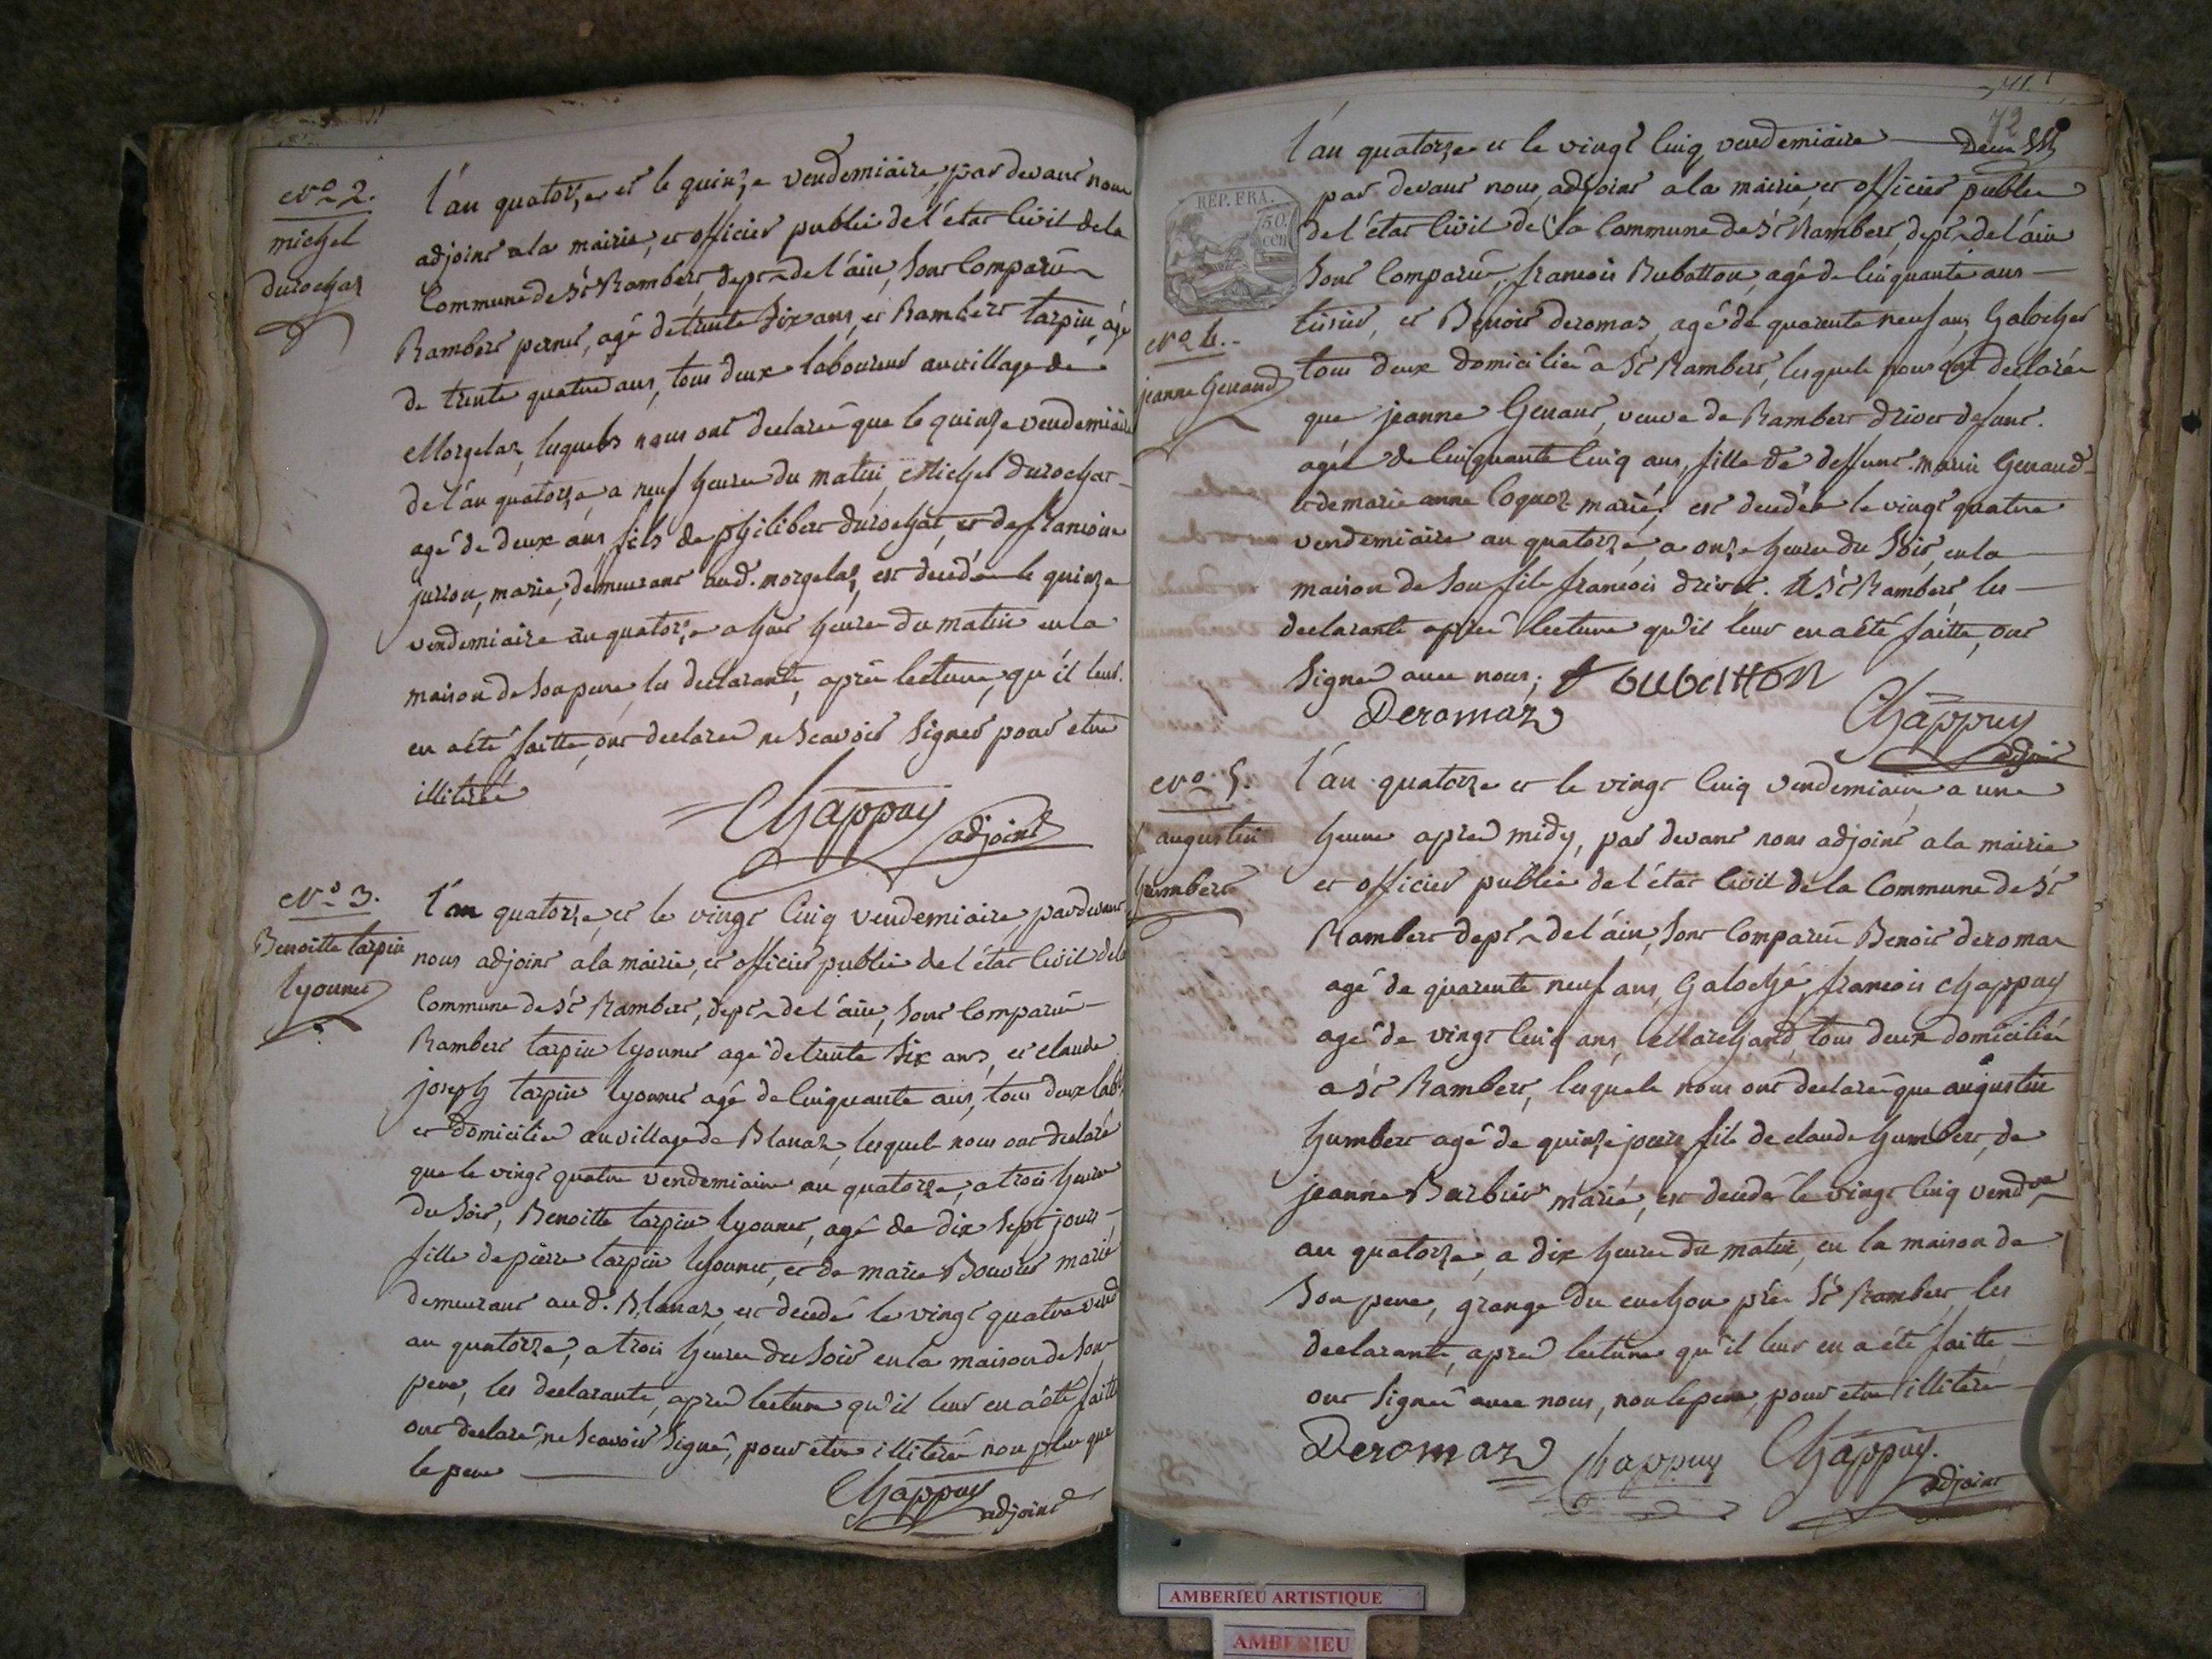 N.o 2.
michel
durochat
l'an quatorze et le quinze vendemiaire, par devant nous
adjoint a la mairie, et officier public de l'état Civil de la
Commune de St Rambert, dept de l'ain, sont Comparu
Rambert pernet, agé de trente six ans, et Rambert tarpin, agé
de trente quatre ans, tous deux laboureur au village de
Morgelas, lesquels nous ont declaré que le quinze vendemiaire
de l'an quatorze, a neuf heure du matin, Michel durochat
agé de deux ans fils de philibert durochat, et de francoise
jurron, marié, demeurant aud. morgelas, est decédé le quinze
vendemiaire an quatorze a huit heure du matin en la
maison de son pere, les declarants, aprés lecture, qu'il leur
en a été faitte, ont declaré ne scavoir signer pour etre
illiteré
Chappuy
adjoint
N.o 3.
Benoitte tarpin
lyonnet
l'an quatorze, et le vingt Cinq vendemiaire, par devant
nous adjoint a la mairie, et officier public de l'état Civil de la
Commune de St Rambert, dept de l'ain, sont Comparu
Rambert tarpin lyonnet agé de trente six ans, et claude
joseph tarpin lyonnet agé de Cinquante ans, tous deux labr
et domicilié au village de Blanaz, lesquels nous ont declaré
que le vingt quatre vendemiaire an quatorze, a trois heure
du soir, Benoitte tarpin lyonnet, agé de dix sept jours
fille de pierre tarpin lyonnet, et de marie Bouvier marié
demeurant aud. Blanaz, est decedé le vingt quatre vend
an quatorze, a trois heure du soir en la maison de son
pere, les declarants, apres lecture qu'il leur en a été faitte
ont declaré ne scavoir signé, pour etre illiteré non plus que
le pere
Chappuy
adjoint
71.
72
l'an quatorze et le vingt Cinq vendemiaire
par devant nous, adjoint a la mairie et officier public
de l'état Civil de la Commune de St Rambert, dept de l'ain
sont Comparu, francois Rubatton, agé de Cinquante ans
tisier, et Benoit deromas, agé de quarente neuf ans, Galocher
tous deux domicilié a St Rambert, lesquels nous ont declaré
que jeanne Genaut, veuve de Rambert drivet defunt.
agée de Cinquante Cinq ans, fille de deffunt marin Genaud
et de marie anne Coquoz marié, est decedée le vingt quatre
vendemiaire an quatorze, a onze heure du soir, en la
maison de son fils francois drivet. a St Rambert les
declarants aprés lecture qu'il leur en a été faitte, ont
signé avec nous;
Deromaz
Chappuy
adjoint
REP. FRA.
50.
cen
N.o 4.
jeanne Genaud
N.o 5.
augustin
humbert
l'an quatorze et le vingt Cinq vendemiaire, a une
heure apres midy, par devant nous adjoint a la mairie
et officier public de l'état Civil de la Commune de St
Rambert dept de l'ain, sont Comparu Benoit deromaz
agé de quarente neuf ans, Galoché, francois chappuy
agé de vingt Cinq ans, Marchand, tous deux domicilié
a St Rambert, lesquels nous ont declaré que augustin
humbert agé de quinze jours fils de claude humbert, de
jeanne Barbier marié, est decedé le vingt Cinq vendre
an quatorze, a dix heure du matin, en la maison de
son pere, grange du cuchon près St Rambert, les
declarants, apres lecture qu'il leur en a été faitte
ont signé avec nous, non le pere, pour etre illiteré
Deromaz Chappuy Chappuy.
adjoint
AMBERIEU ARTISTIQUE
AMBERIEU